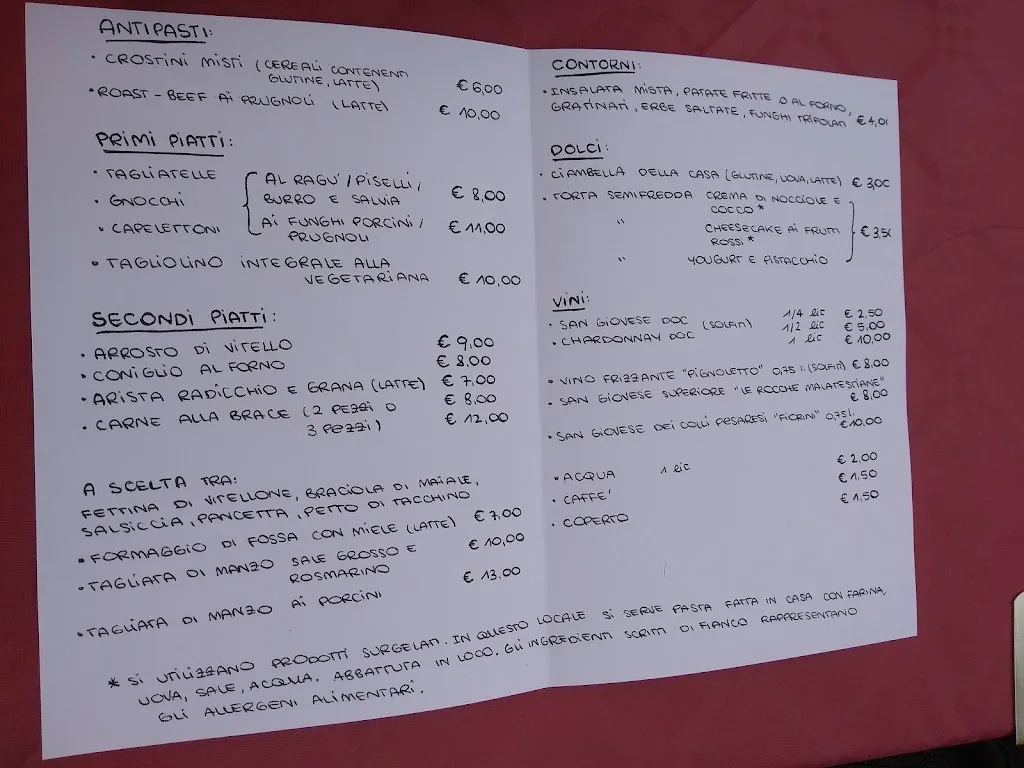 ANTIPASTI:
· CROSTINI MISTI (CEREALI CONTENENTI
GLUTINE, LATTE) € 6,00
· ROAST-BEEF AI PRUGNOLI (LATTE) € 10,00
PRIMI PIATTI:
· TAGLIATELLE
· GNOCCHI
· CAPELETTONI
AL RAGU'/PISELLI/
BURRO E SALVIA € 8,00
AI FUNGHI PORCINI/
PRUGNOLI € 11,00
· TAGLIOLINO INTEGRALE ALLA
VEGETARIANA € 10,00
SECONDI PIATTI:
· ARROSTO DI VITELLO € 9,00
· CONIGLIO AL FORNO € 8,00
· ARISTA RADICCHIO E GRANA (LATTE) € 7,00
· CARNE ALLA BRACE (2 PEZZI O € 8,00
3 PEZZI) € 12,00
A SCELTA TRA:
FETTINA DI VITELLONE, BRACIOLA DI MAIALE,
SALSICCIA, PANCETTA, PETTO DI TACCHINO
· FORMAGGIO DI FOSSA CON MIELE (LATTE) € 7,00
· TAGLIATA DI MANZO SALE GROSSO E
ROSMARINO € 10,00
· TAGLIATA DI MANZO AI PORCINI € 13,00
CONTORNI:
· INSALATA MISTA, PATATE FRITTE O AL FORNO,
GRATINATI, ERBE SALTATE, FUNGHI TRIFOLATI € 4,00
DOLCI:
· CIAMBELLA DELLA CASA (GLUTINE, UOVA, LATTE) € 3,00
· TORTA SEMIFREDDA CREMA DI NOCCIOLE E
COCCO *
" CHEESECAKE AI FRUTTI
ROSSI * € 3,50
" YOUGURT E PISTACCHIO
VINI:
· SAN GIOVESE DOC (SOLFITI) 1/4 lit € 2,50
· CHARDONNAY DOC 1/2 lit € 5,00
1 lit € 10,00
· VINO FRIZZANTE "PIGNOLETTO" 0,75 l. (SOLFITI) € 8,00
· SAN GIOVESE SUPERIORE "LE ROCCHE MALATESTIANE"
€ 8,00
· SAN GIOVESE DEI COLLI PESARESI "FIORINI" 0,75 l.
€ 10,00
· ACQUA 1 lit € 2,00
· CAFFE' € 1,50
· COPERTO € 1,50
* SI UTILIZZANO PRODOTTI SURGELATI. IN QUESTO LOCALE SI SERVE PASTA FATTA IN CASA CON FARINA,
UOVA, SALE, ACQUA. ABBATTUTA IN LOCO. GLI INGREDIENTI SCRITTI DI FIANCO RAPPRESENTANO
GLI ALLERGENI ALIMENTARI.